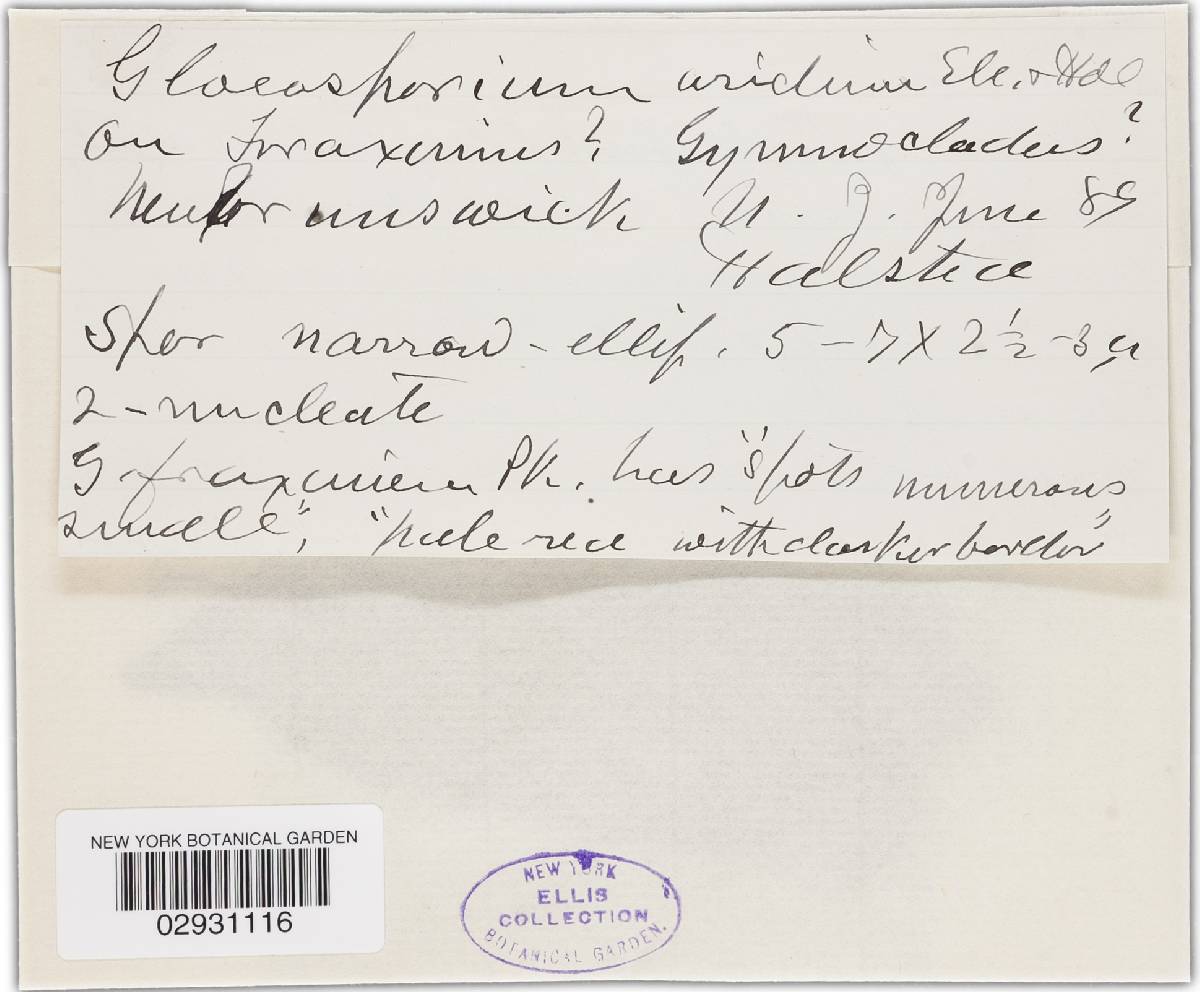 Gloeosporium aridum Ell. & Hal
on Fraxinus? Gymnocladus?
New Brunswick N. J. June 89
Halsted
Spor narrow-ellip. 5-7 X 2½-3 µ
2-nucleate
G fraxineum Pk. has "spots numerous
small", "pale red with darker border"
NEW YORK BOTANICAL GARDEN
02931116
NEW YORK
ELLIS
COLLECTION
BOTANICAL GARDEN.